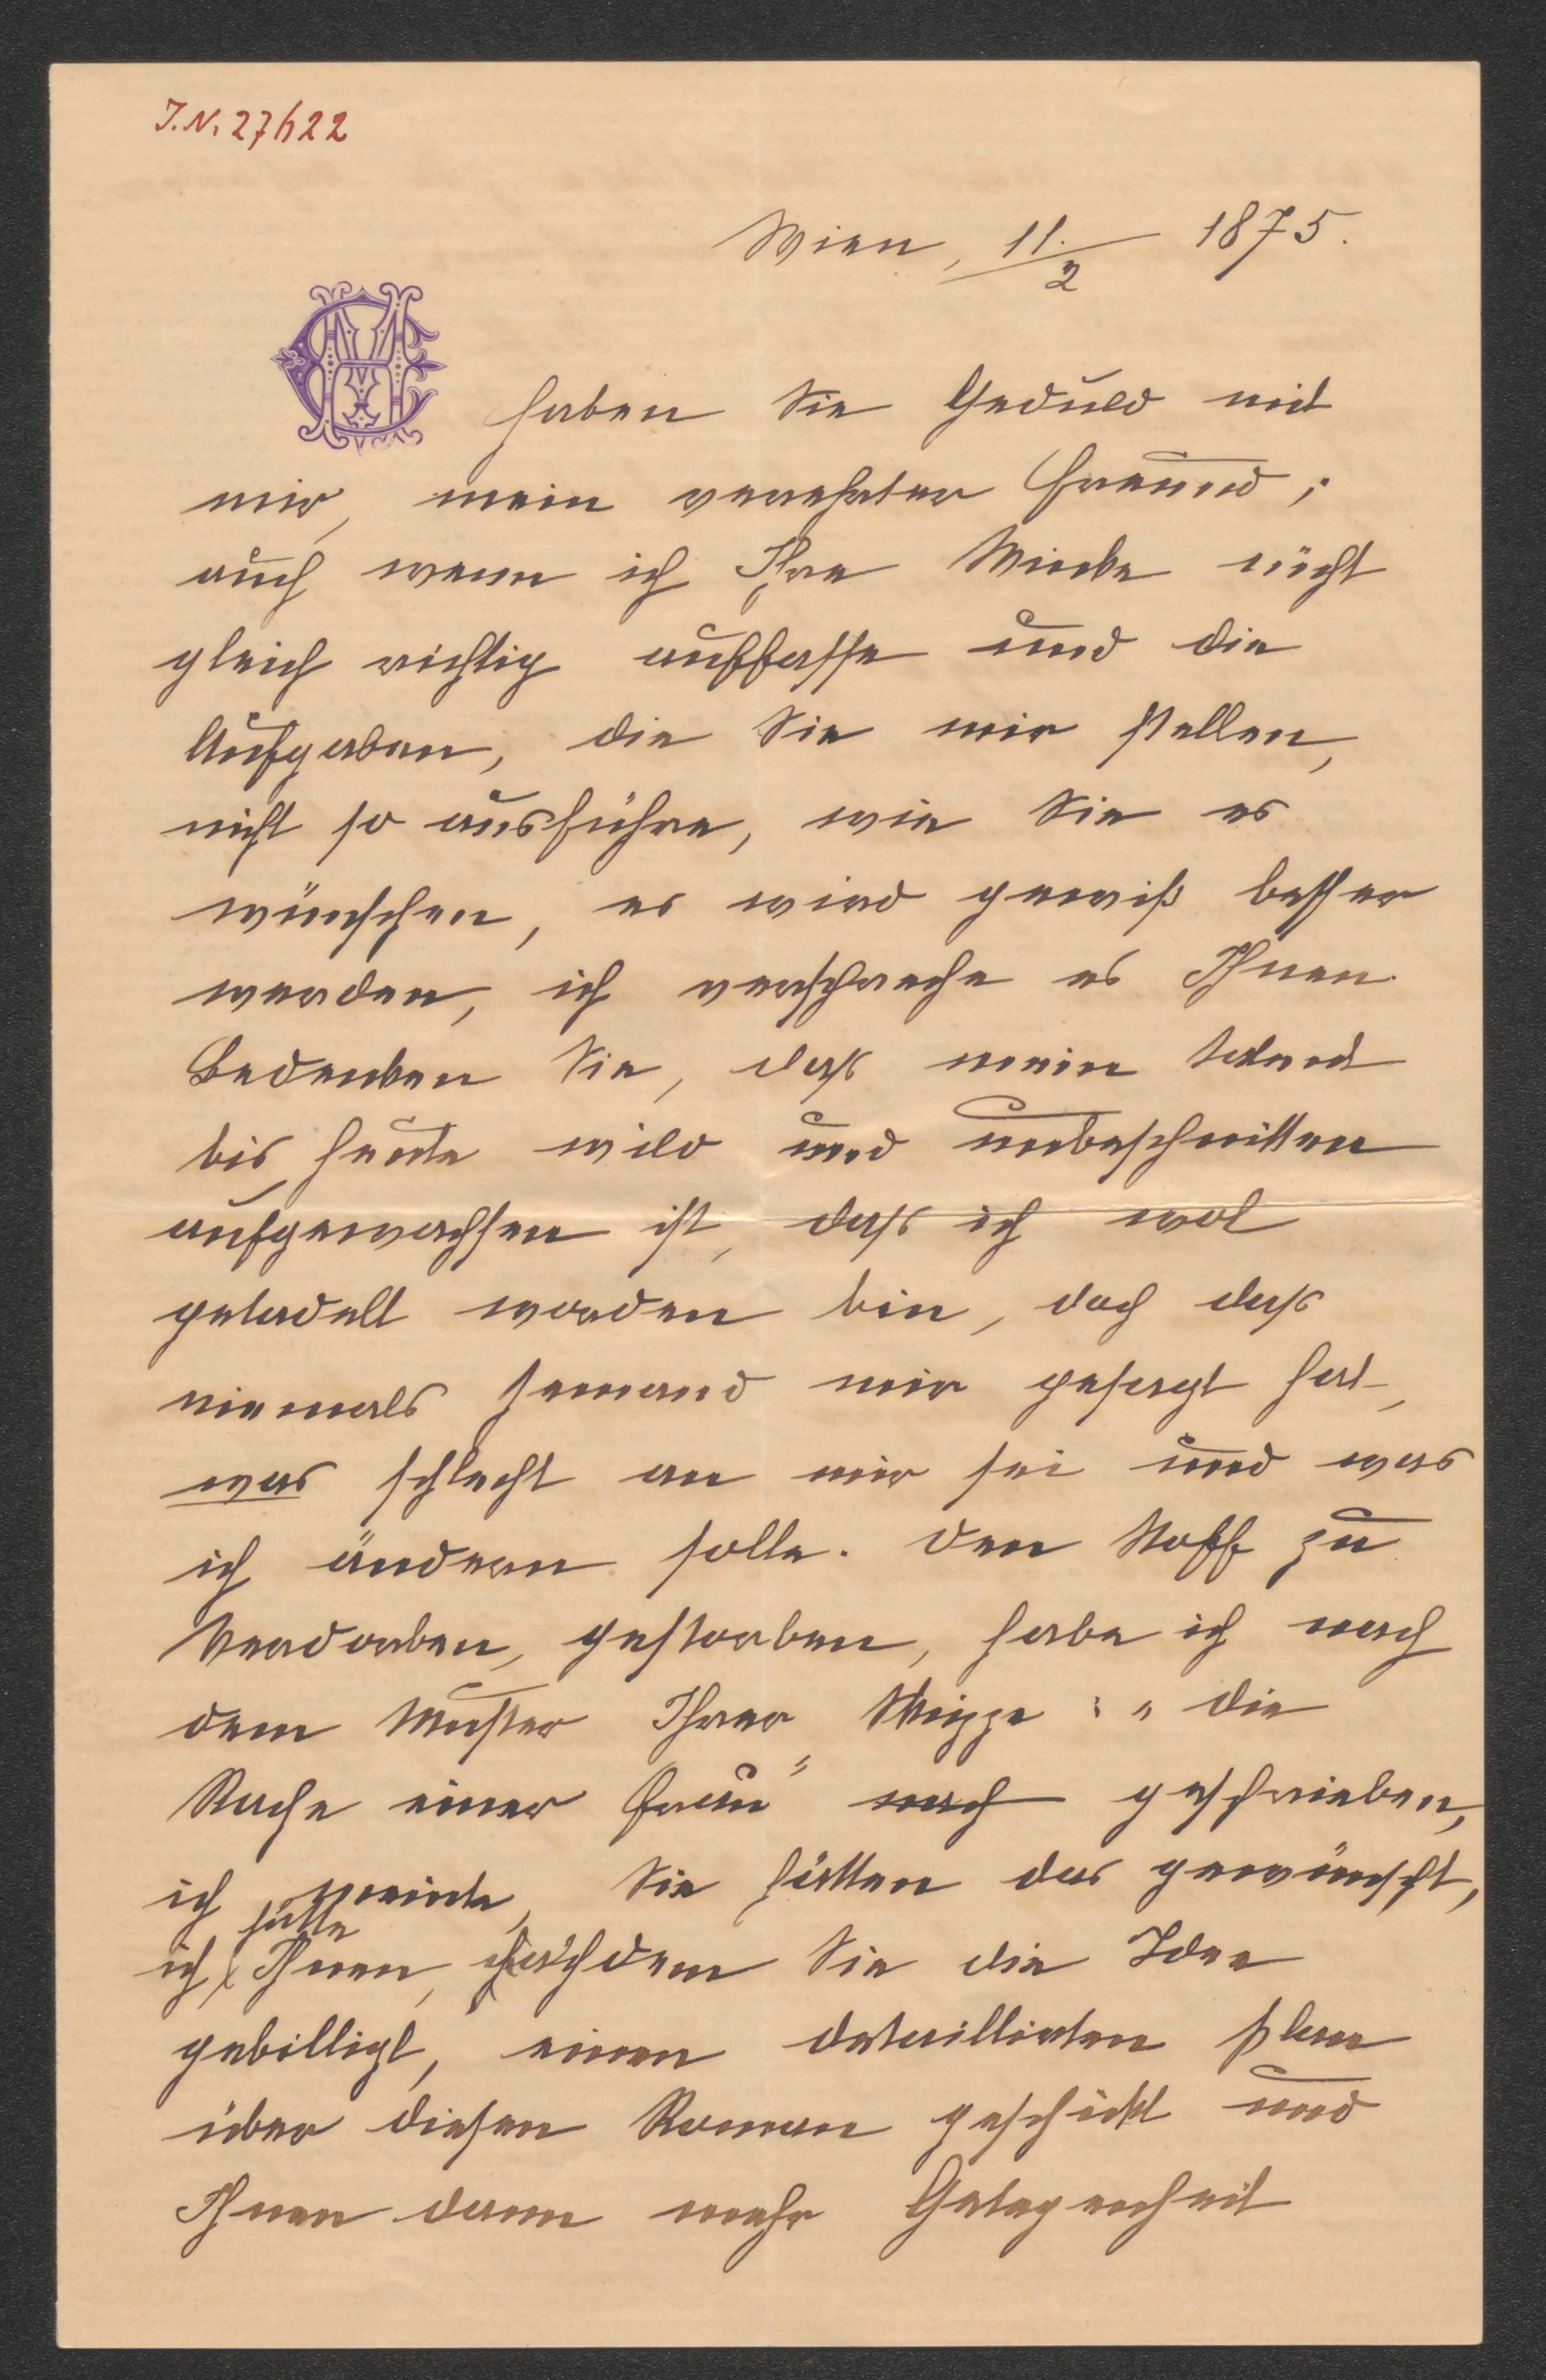 J.N. 27622
Wien, 11./2 1875.
Haben Sie Geduld mit
mir, mein verehrter Freund,
auch wenn ich Ihre Winke nicht
gleich richtig auffasse und die
Aufgaben, die Sie mir stellen,
nicht so ausführe, wie Sie es
wünschen, es wird gewiß besser
werden, ich verspreche es Ihnen.
Bedenken Sie, daß mein Talent
bis heute wild und unbeschnitten
aufgewachsen ist, daß ich wol
getadelt worden bin, doch daß
niemals Jemand mir gesagt hat,
was schlecht an mir sei und was
ich ändern solle. Den Stoff zu
Verdorben, gestorben, habe ich nach
dem Muster Ihrer Skizze: „die
Rache einer Frau" nach geschrieben,
ich meinte, Sie hätten das gewünscht,
ich hätte Ihnen, nachdem Sie die Idee
gebilligt, einen detaillirten Plan
über diesen Roman geschickt und
Ihnen dann mehr Gelegenheit